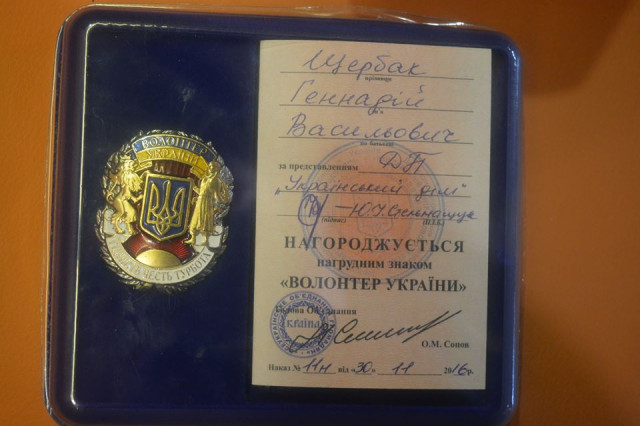 ВОЛОНТЕР
УКРАЇНИ
ЧЕСТЬ ТУРБОТА
Щербак
прізвище
Геннадій
Васильович
за представленням ДП
„Український дім"
(підпис) (П.І.Б.)
НАГОРОДЖУЄТЬСЯ
нагрудним знаком
«ВОЛОНТЕР УКРАЇНИ»
Голова Об'єднання
країна
О.М. Сопов
Наказ № 11н від «30» 11 2016р.